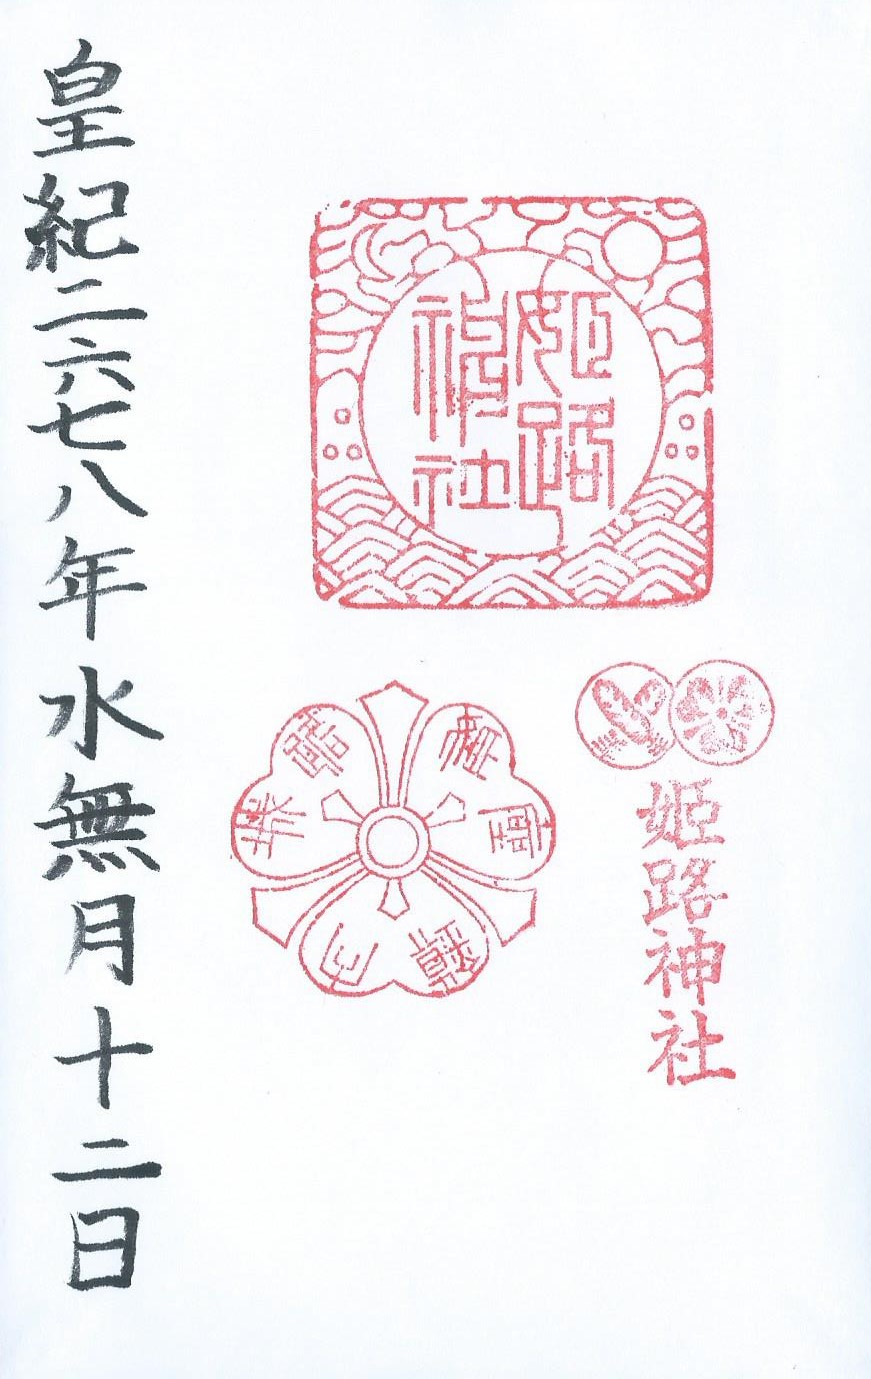 姫路
神社
姫路神社
皇紀二六七八年水無月十二日